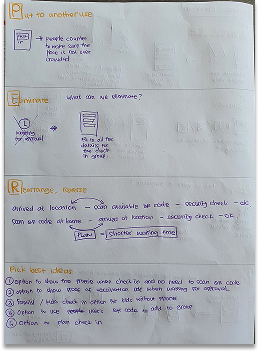 Put to another use
→ people counter
to make sure the
place is not over
crowded
Eliminate
What can we eliminate?
waiting
for arrival
fill in all the
details for
the check
in group.
Rearrange, reverse
arrived at location → scan available QR code → security check → ok
Scan QR code at home → arrive at location → security check → OK
Plan = shorter waiting time
Pick best ideas
① option to show the phone when check in and no need to scan QR code
② option to show
③ Family / kids check in option for kids without phone
④ option to use QR code to
⑤ option to plan check in